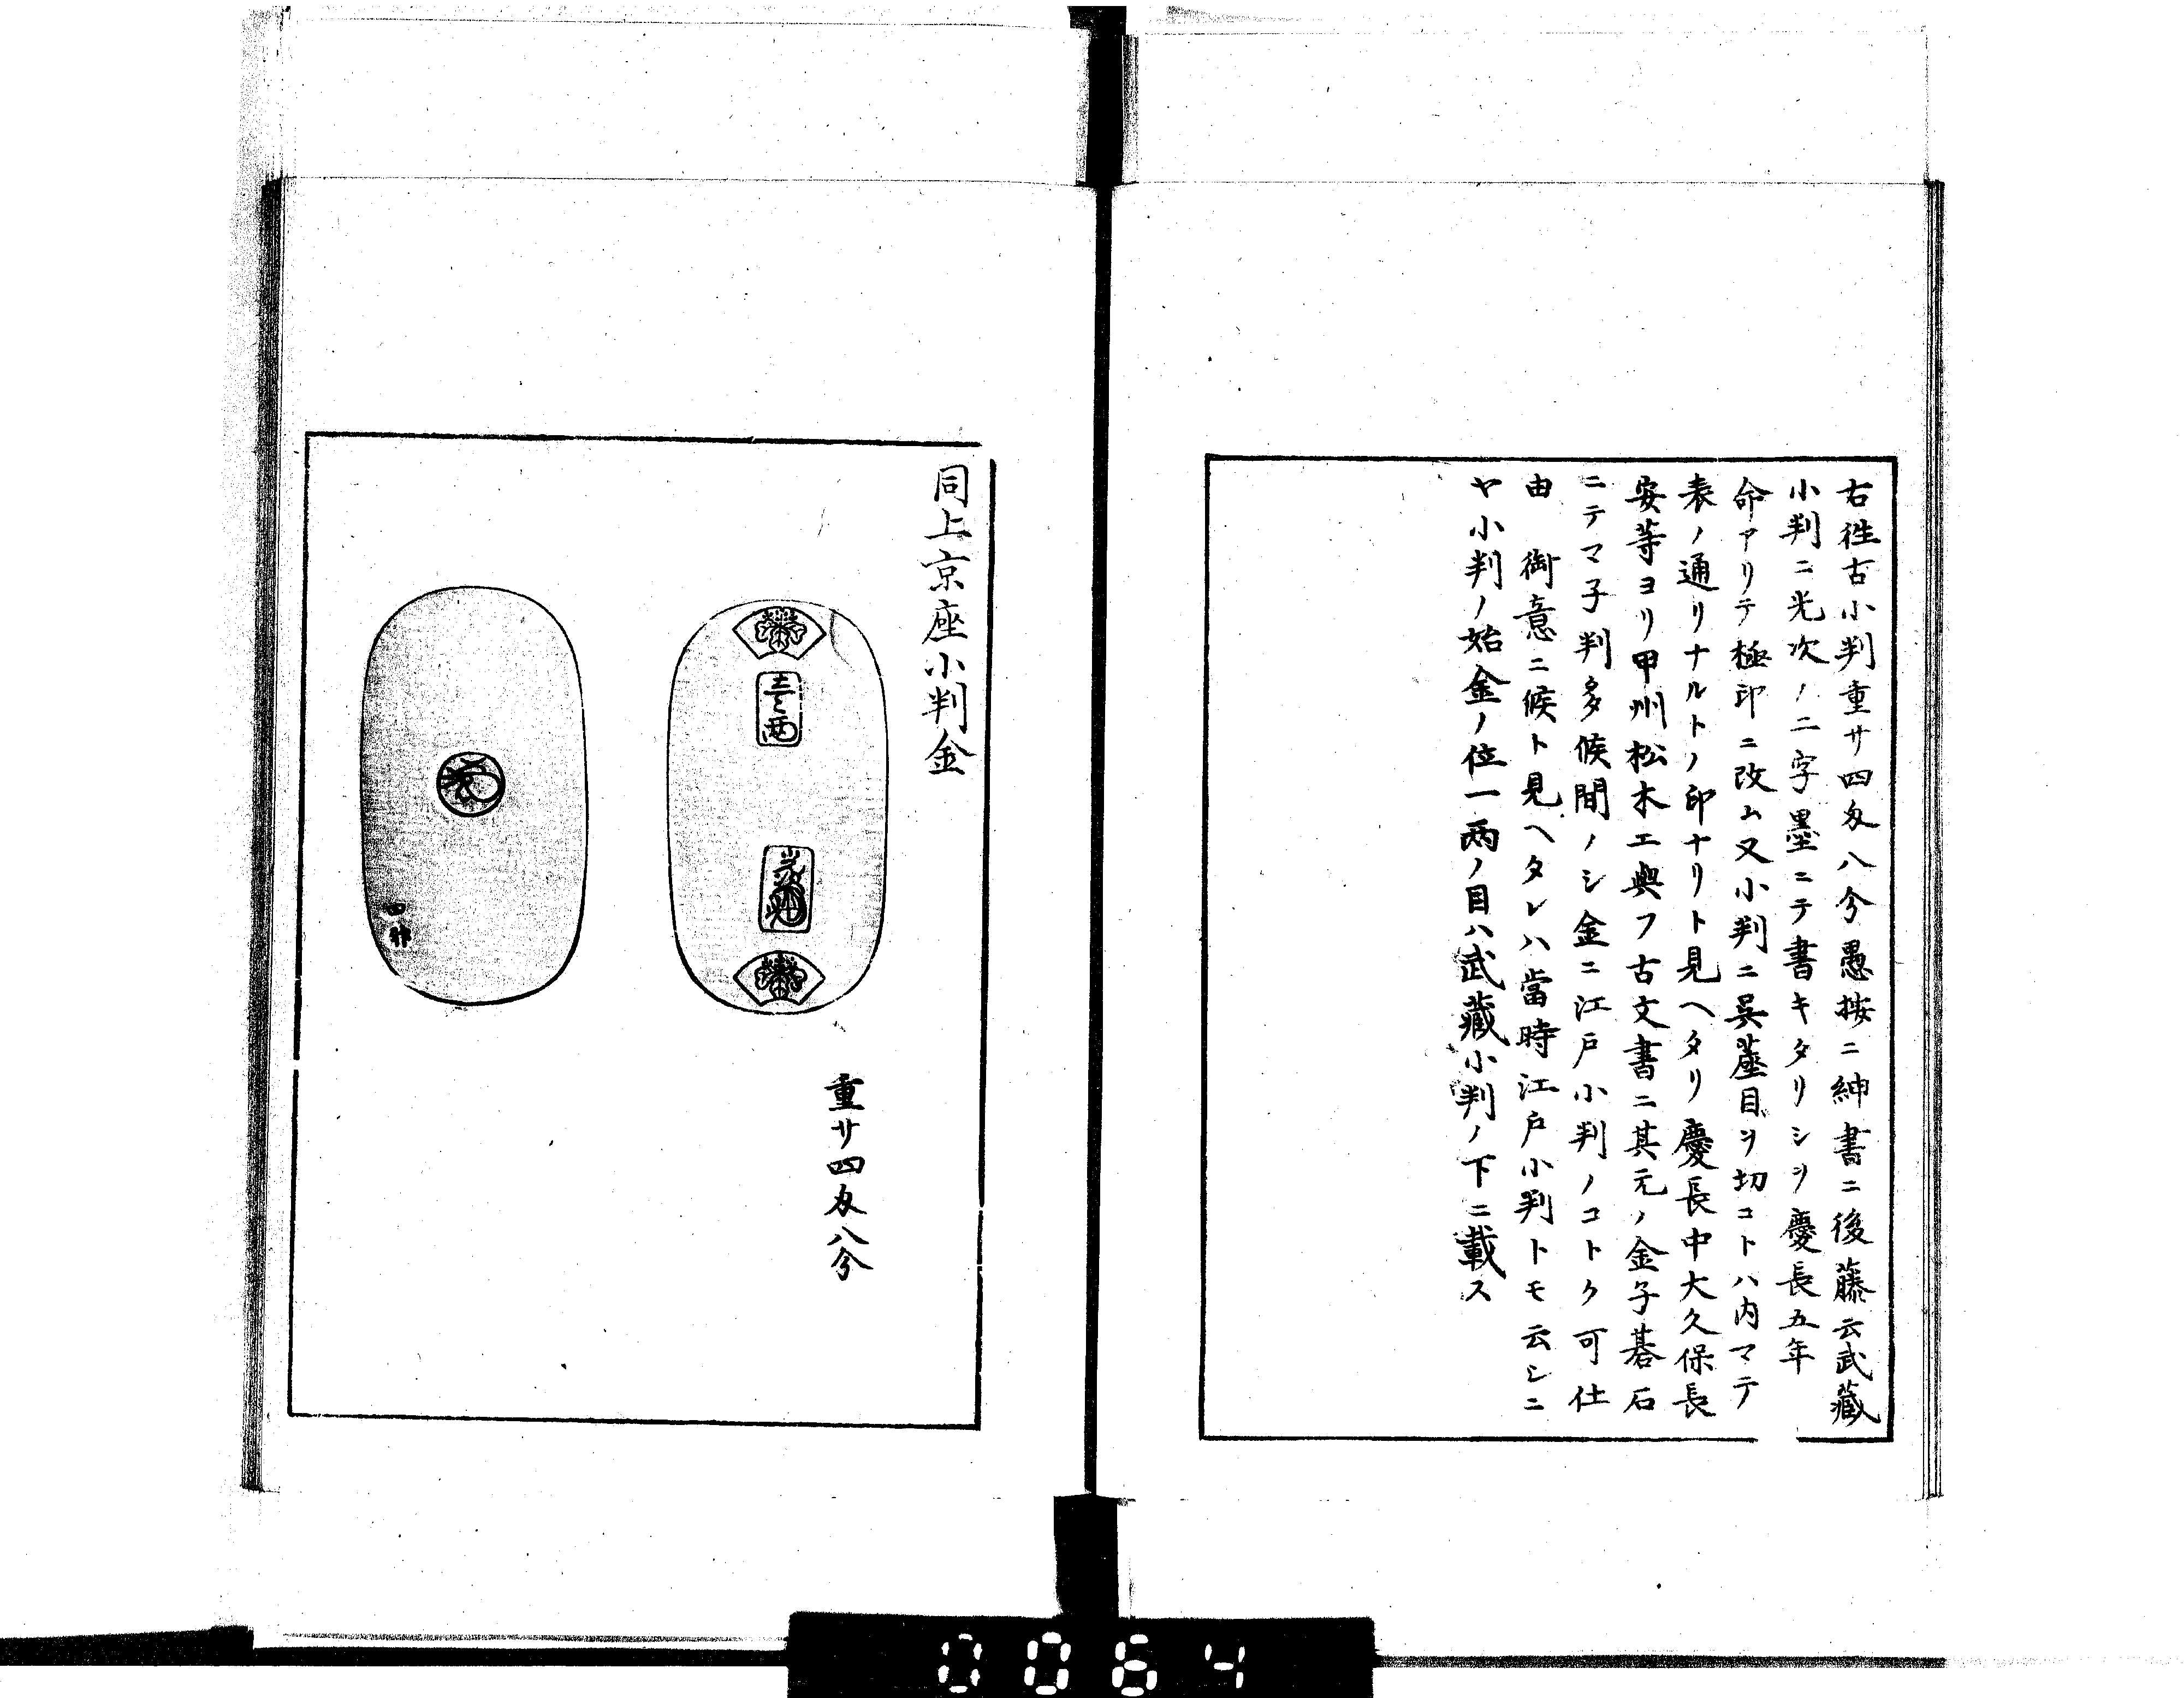 右徃古小判重サ四匁八分愚按ニ紳書ニ後藤云武藏
小判ニ光次ノ二字墨ニテ書キタリシヲ慶長五年
命アリテ極印ニ改ム又小判ニ呉蓙目ヲ切コトハ内マテ
表ノ通リナルトノ印ナリト見ヘタリ慶長中大久保長
安等ヨリ甲州松木エ與フ古文書ニ其元ノ金子碁石
ニテマ子判多候間ノシ金ニ江戸小判ノコトク可仕
由　御意ニ候ト見ヘタレハ當時江戸小判トモ云シニ
ヤ小判ノ始金ノ位一両ノ目ハ武藏小判ノ下ニ載ス
同上京座小判金
壹両
光次
重サ四匁八分
0064